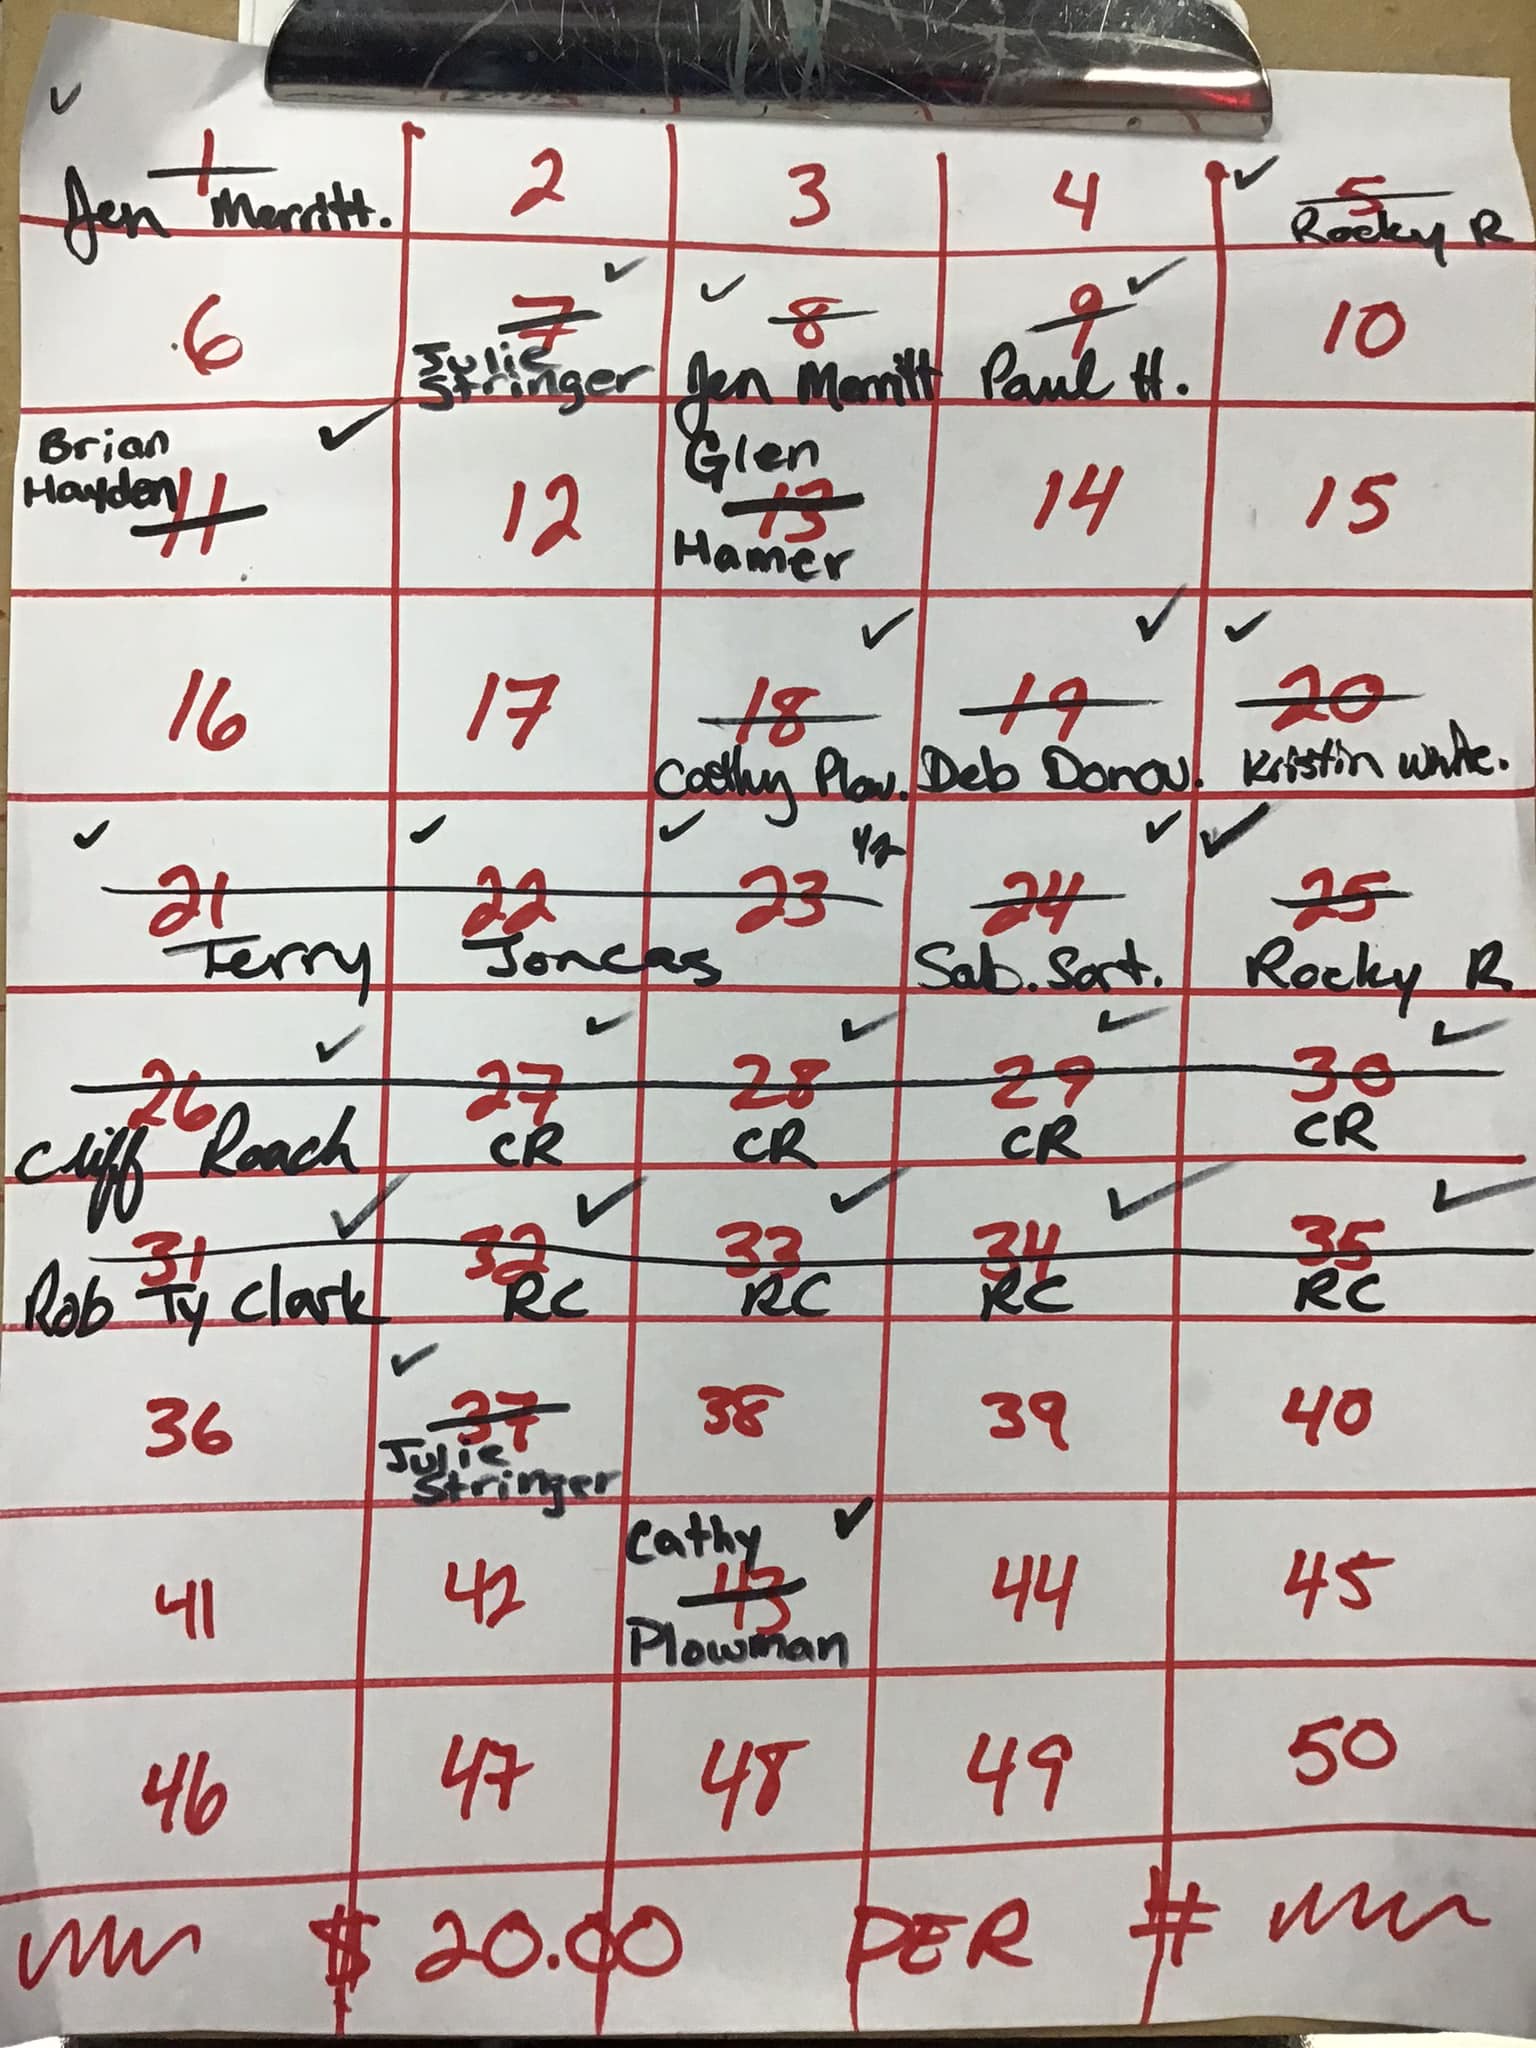 1 2 3 4 5
Jen Merritt. Rocky R
6 7 8 9 10
Julie
Stringer Jen Merritt Paul H.
Brian Glen
Hayden 11 12 13 14 15
Hamer
16 17 18 19 20
Cathy Plow. Deb Donov. Kristin White.
1/2
21 22 23 24 25
Terry Joncas Sab. Sart. Rocky R
26 27 28 29 30
Cliff Roach CR CR CR CR
31 32 33 34 35
Rob Ty Clark RC RC RC RC
36 37 38 39 40
Julie
Stringer
Cathy
41 42 43 44 45
Plowman
46 47 48 49 50
$ 20.00 PER #